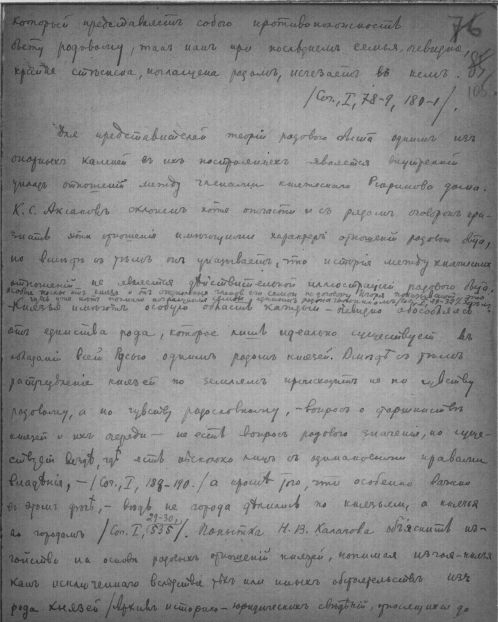 который представляетъ собою противоположность
76
быту родовому, такъ какъ при последнемъ семья, очевидно,
крайне стеснена, поглащена родомъ, исчезаетъ въ немъ.
/Соч., I, 78-9, 180-1/.
Для представителей теоріи родового быта однимъ изъ
опорныхъ камней въ ихъ построеніяхъ является внутренній
укладъ отношеній между членами княжескаго Рюрикова дома.
К. С. Аксаковъ склоненъ хотя отчасти и съ рядомъ оговорокъ при-
знать эти отношенія имеющими характеръ отношеній родового быта,
но вместе съ темъ онъ указываетъ, что исторія междукняжескихъ
отношеній не является действительной иллюстраціей родового быта.
Князья имеютъ особую область каждый
отъ единства рода, которое лишь идеально существуетъ въ
всей Русью однимъ родомъ князей. Вместе съ темъ
распределеніе князей по землямъ происходитъ не по чувству
родовому, а по чувству родословному, – вопросъ о старшинстве
князей и ихъ очереди – не есть вопросъ родового значенія, но суще-
ствуетъ везде, где есть несколько лицъ съ одинаковыми правами
владенія, – /Соч., I, /а кроме того, что особенно важно
въ этомъ , – ведь не города делились по князьямъ, а князья
по городамъ /Соч. I, 29-30, /. Попытка Н. В. Калачова объяснить из-
гойство на основе родовыхъ отношеній князей, понимая изгоя-князя
какъ исключеннаго вследствіе техъ или иныхъ обстоятельствъ изъ
рода князей /Архивъ историко-юридическихъ сведеній, относящихся до